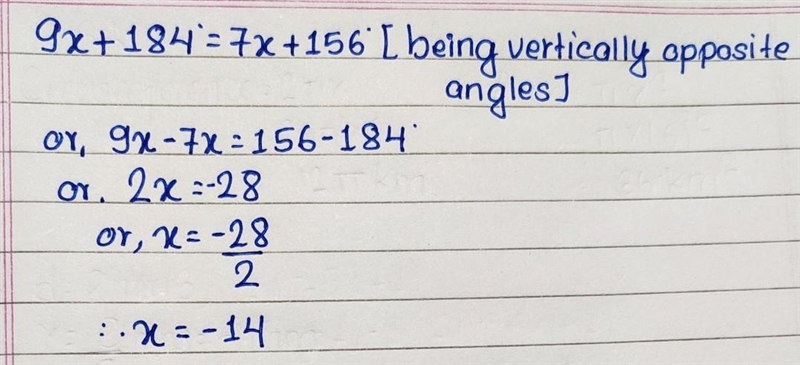 9x+184°=7x+156° [being vertically opposite
angles]
or, 9x-7x=156-184°
or. 2x=-28
or, x= -28/2
∴x=-14